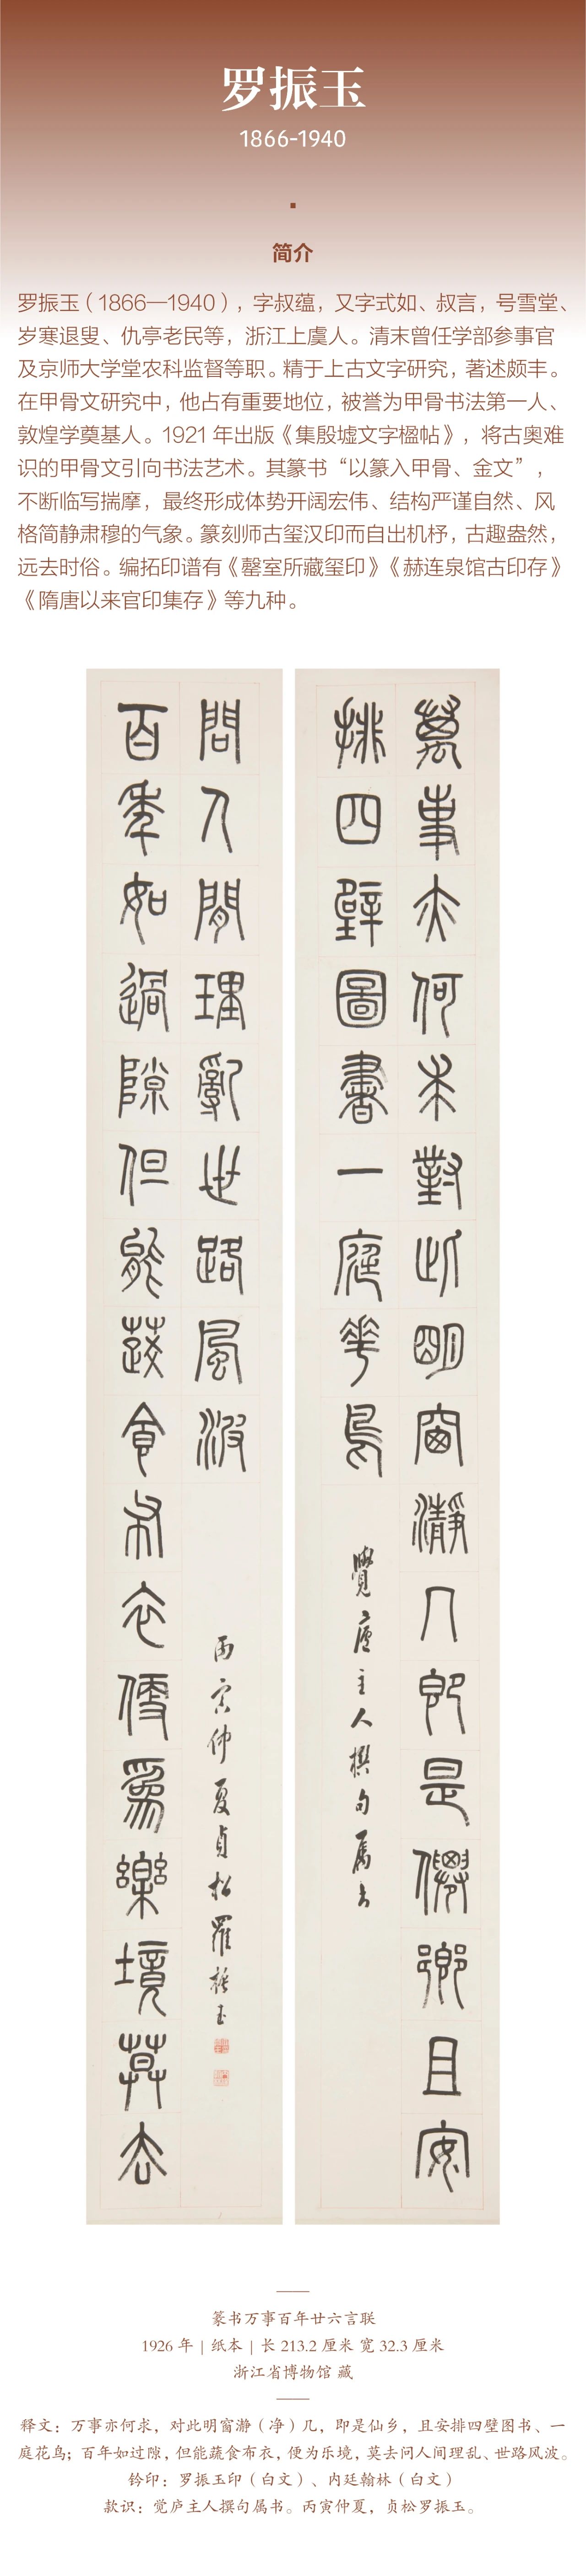 罗振玉
1866-1940
简介
罗振玉（1866—1940），字叔蕴，又字式如、叔言，号雪堂、
岁寒退叟、仇亭老民等，浙江上虞人。清末曾任学部参事官
及京师大学堂农科监督等职。精于上古文字研究，著述颇丰。
在甲骨文研究中，他占有重要地位，被誉为甲骨书法第一人、
敦煌学奠基人。1921 年出版《集殷墟文字楹帖》，将古奥难
识的甲骨文引向书法艺术。其篆书“以篆入甲骨、金文”，
不断临写揣摩，最终形成体势开阔宏伟、结构严谨自然、风
格简静肃穆的气象。篆刻师古玺汉印而自出机杼，古趣盎然，
远去时俗。编拓印谱有《罄室所藏玺印》《赫连泉馆古印存》
《隋唐以来官印集存》等九种。
萬事亦何求對此明窗瀞几即是僊鄉且安
排四壁圖書一庭華鳥
覺廬主人撰句属書
百年如過隙但能蔬食布衣便爲樂境莫去
問人閒理亂世路風波
丙寅仲夏貞松羅振玉
篆书万事百年廿六言联
1926 年 | 纸本 | 长 213.2 厘米 宽 32.3 厘米
浙江省博物馆 藏
释文：万事亦何求，对此明窗瀞（净）几，即是仙乡，且安排四壁图书、一
庭花鸟；百年如过隙，但能蔬食布衣，便为乐境，莫去问人间理乱、世路风波。
钤印：罗振玉印（白文）、内廷翰林（白文）
款识：觉庐主人撰句属书。丙寅仲夏，贞松罗振玉。